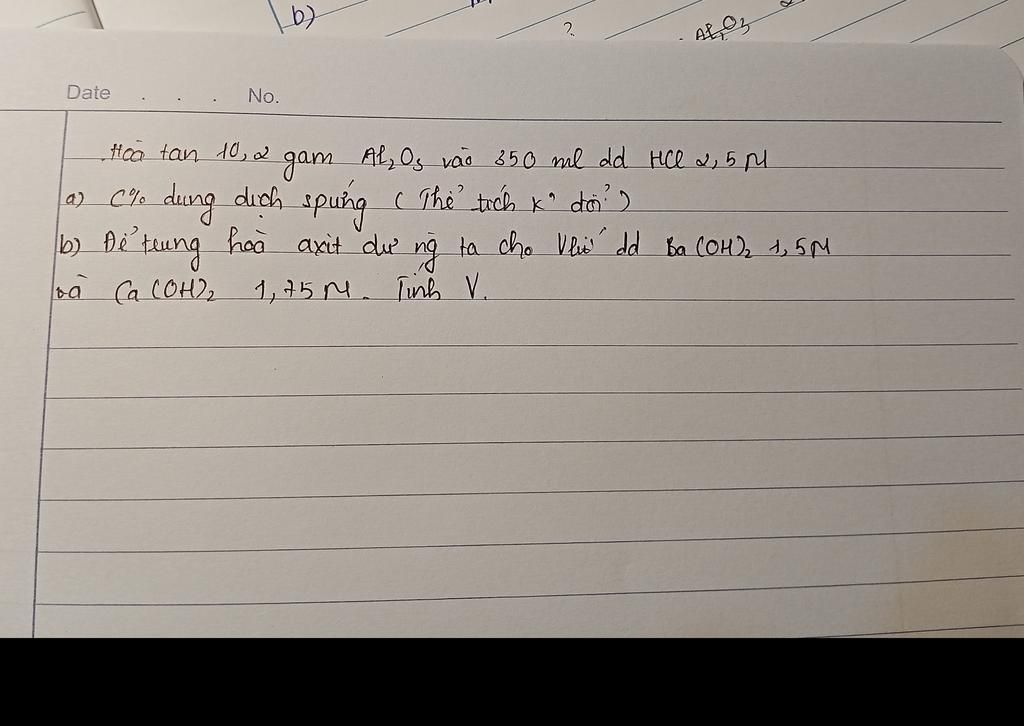 b)
?
Al₂O₃
Date . . . No.
.Hoà tan 10,2 gam Al₂O₃ vào 350 ml dd HCl 2,5M
a) C% dung dịch spứng (Thể tích k° đổi)
b) Để trung hoà axit dư ng ta cho V lít dd Ba(OH)₂ 1,5M
và Ca(OH)₂ 1,75M. Tính V.